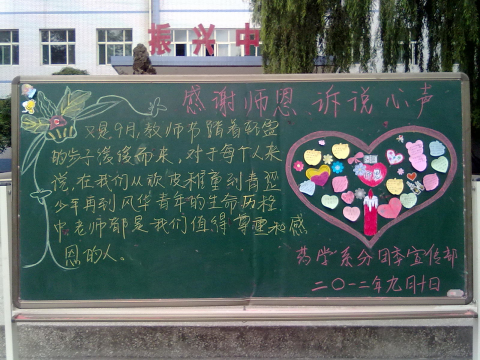 振兴中
感谢师恩 诉说心声
又是9月,教师节踏着轻盈
的步子缓缓而来,对于每个人来
说,在我们从顽皮稚童到青涩
少年再到风华青年的生命历程
中,老师都是我们值得尊重和感
恩的人。
药学系分团委宣传部
二〇一二年九月十日